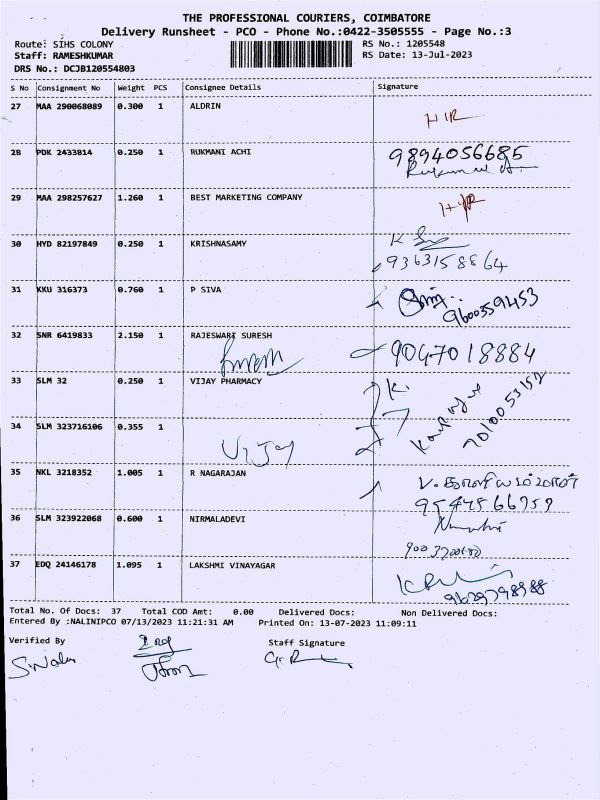 THE PROFESSIONAL COURIERS, COIMBATORE
Delivery Runsheet - PCO - Phone No.:0422-3505555 - Page No.:3
Route: SIHS COLONY
RS No.: 1205548
Staff: RAMESHKUMAR
RS Date: 13-Jul-2023
DRS No.: DCJB120554803
S No Consignment No Weight PCS Consignee Details Signature
27 MAA 290068089 0.300 1 ALDRIN
28 PDK 2433814 0.250 1 RUKMANI ACHI 9894056685
29 MAA 298257627 1.260 1 BEST MARKETING COMPANY
30 HYD 82197849 0.250 1 KRISHNASAMY
9363158864
31 KKU 316373 0.760 1 P SIVA
9600359453
32 SNR 6419833 2.150 1 RAJESWARI SURESH
9047018884
33 SLM 32 0.250 1 VIJAY PHARMACY
7010053152
34 SLM 323716106 0.355 1
VIJAY
35 NKL 3218352 1.005 1 R NAGARAJAN
36 SLM 323922068 0.600 1 NIRMALADEVI
37 EDQ 24146178 1.095 1 LAKSHMI VINAYAGAR
9629798988
Total No. Of Docs: 37 Total COD Amt: 0.00 Delivered Docs: Non Delivered Docs:
Entered By :NALINIPCO 07/13/2023 11:21:31 AM Printed On: 13-07-2023 11:09:11
Verified By Staff Signature